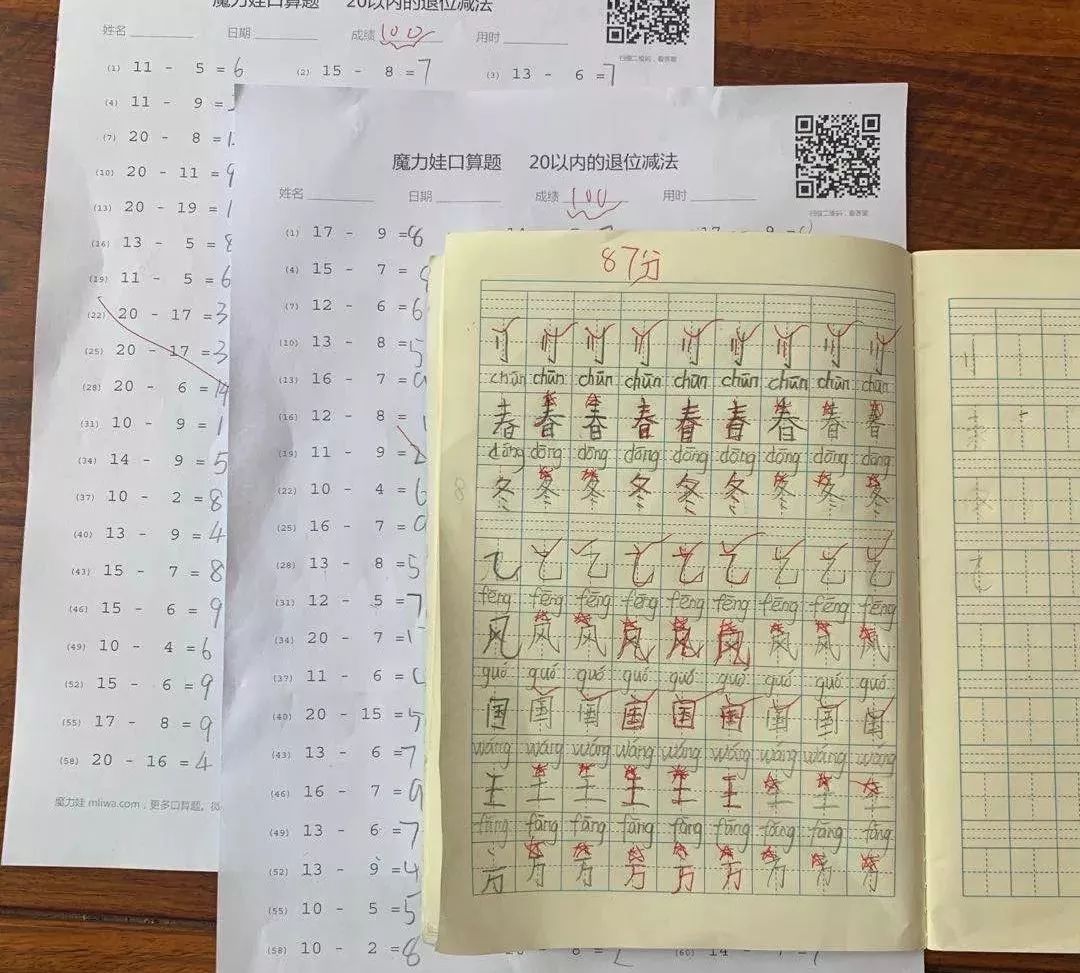 魔力娃口算题 20以内的退位减法
姓名 日期 成绩 100 用时
扫描二维码，看答案
(1) 11 - 5 = 6 (2) 15 - 8 = 7 (3) 13 - 6 = 7
(4) 11 - 9 =
(7) 20 - 8 = 1
(10) 20 - 11 = 9
(13) 20 - 19 = 1
(16) 13 - 5 = 8
(19) 11 - 5 = 6
(22) 20 - 17 = 3
(25) 20 - 17 = 3
(28) 20 - 6 = 14
(31) 10 - 9 = 1
(34) 14 - 9 = 5
(37) 10 - 2 = 8
(40) 13 - 9 = 4
(43) 15 - 7 = 8
(46) 15 - 6 = 9
(49) 10 - 4 = 6
(52) 15 - 6 = 9
(55) 17 - 8 = 9
(58) 20 - 16 = 4
魔力娃 mliwa.com，更多口算题。
魔力娃口算题 20以内的退位减法
姓名 日期 成绩 100 用时
扫描二维码，看答案
(1) 17 - 9 = 8
(4) 15 - 7 =
(7) 12 - 6 = 6
(10) 13 - 8 = 5
(13) 16 - 7 = 9
(16) 12 - 8 =
(19) 11 - 9 = 2
(22) 10 - 4 = 6
(25) 16 - 7 = 9
(28) 13 - 8 = 5
(31) 12 - 5 = 7
(34) 20 - 7 = 1
(37) 11 - 6 =
(40) 20 - 15 = 5
(43) 13 - 6 = 7
(46) 16 - 7 = 9
(49) 13 - 6 = 7
(52) 13 - 9 = 4
(55) 10 - 5 = 5
(58) 10 - 2 = 8
(60) 14 - 7
87分
chūn chūn chūn chūn chūn chūn chūn chūn chūn
春 春 春 春 春 春 春 春 春
dōng dōng dōng dōng dōng dōng dōng dōng dōng
冬 冬 冬 冬 冬 冬 冬 冬 冬
fēng fēng fēng fēng fēng fēng fēng fēng fēng
风 风 风 风 风 风 风 风 风
guó guó guó guó guó guó guó guó guó
国 国 国 国 国 国 国 国 国
wáng wáng wáng wáng wáng wáng wáng wáng wáng
王 王 王 王 王 王 王 王 王
fāng fāng fāng fāng fāng fāng fāng fāng fāng
方 方 方 方 方 方 方 方 方